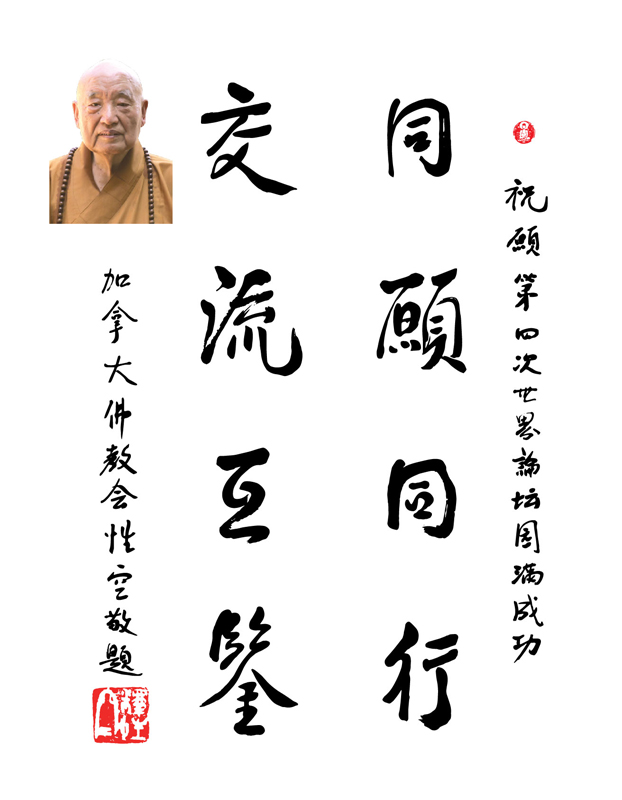 祝願第四次世界論坛圆满成功
同願同行
交流互鋻
加拿大佛教会性空敬題